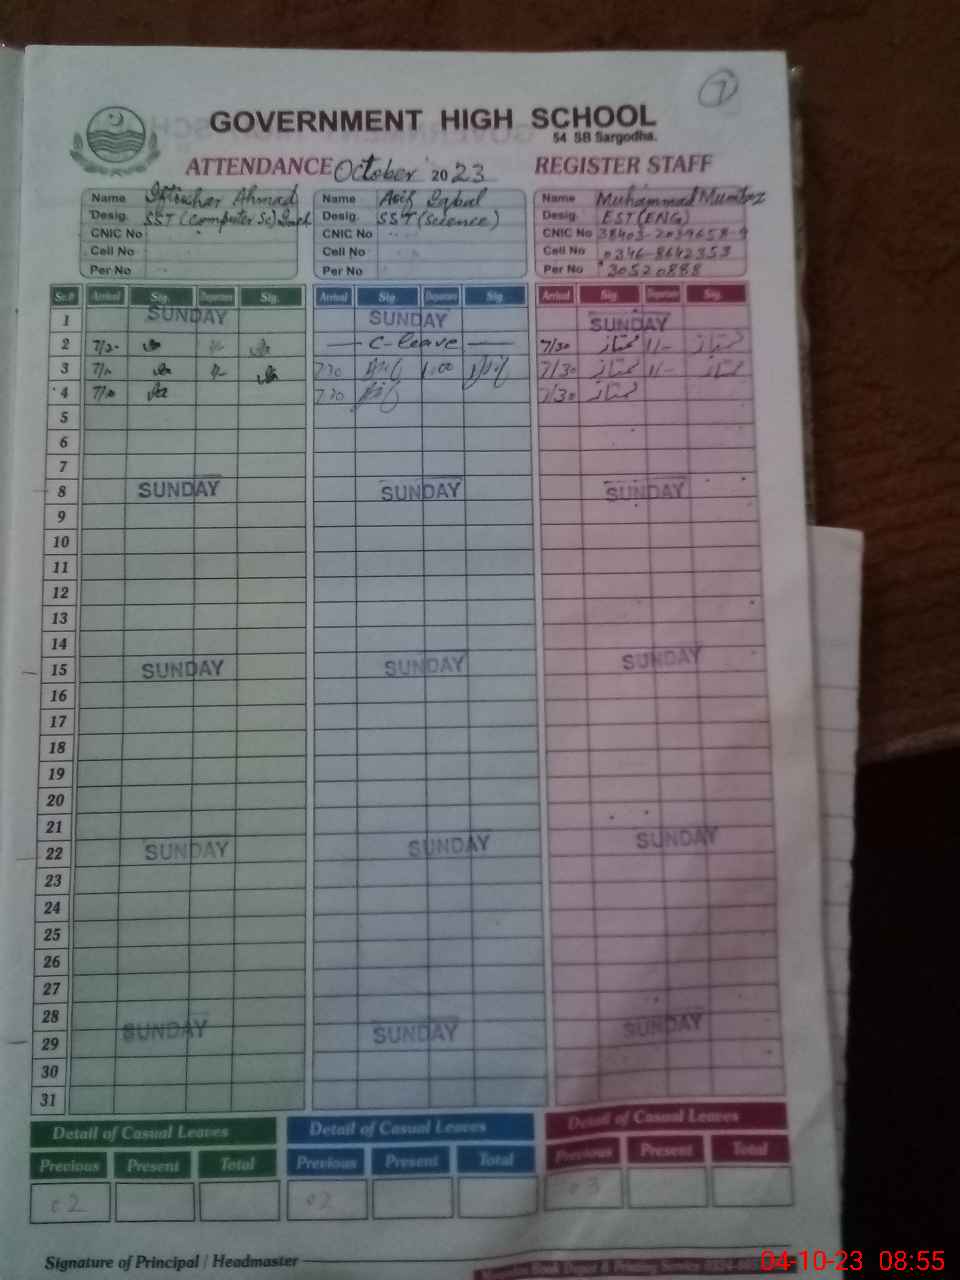 7
GOVERNMENT HIGH SCHOOL
54 SB Sargodha.
ATTENDANCE October 2023 REGISTER STAFF
Name Iftikhar Ahmad Name Asif Iqbal Name Muhammad Mumtaz
Desig. SST (Computer Sc) Desig. SST (Science) Desig. EST (ENG)
CNIC No CNIC No CNIC No 38403-2039658-9
Cell No Cell No Cell No 0346-8642353
Per No Per No Per No 30520888
Sr.# Arrival Sig. Departure Sig. Arrival Sig. Departure Sig. Arrival Sig. Departure Sig.
1 SUNDAY SUNDAY SUNDAY
2 C-leave 7/30 ممتاز 1/- ممتاز
3 7 30 1:00 7/30 ممتاز 1/- ممتاز
4 7 30 7/30 ممتاز
5
6
7
8 SUNDAY SUNDAY SUNDAY
9
10
11
12
13
14
15 SUNDAY SUNDAY SUNDAY
16
17
18
19
20
21
22 SUNDAY SUNDAY SUNDAY
23
24
25
26
27
28
29 SUNDAY SUNDAY SUNDAY
30
31
Detail of Casual Leaves Detail of Casual Leaves Detail of Casual Leaves
Previous Present Total Previous Present Total Previous Present Total
02 02 03
Signature of Principal / Headmaster
04-10-23 08:55